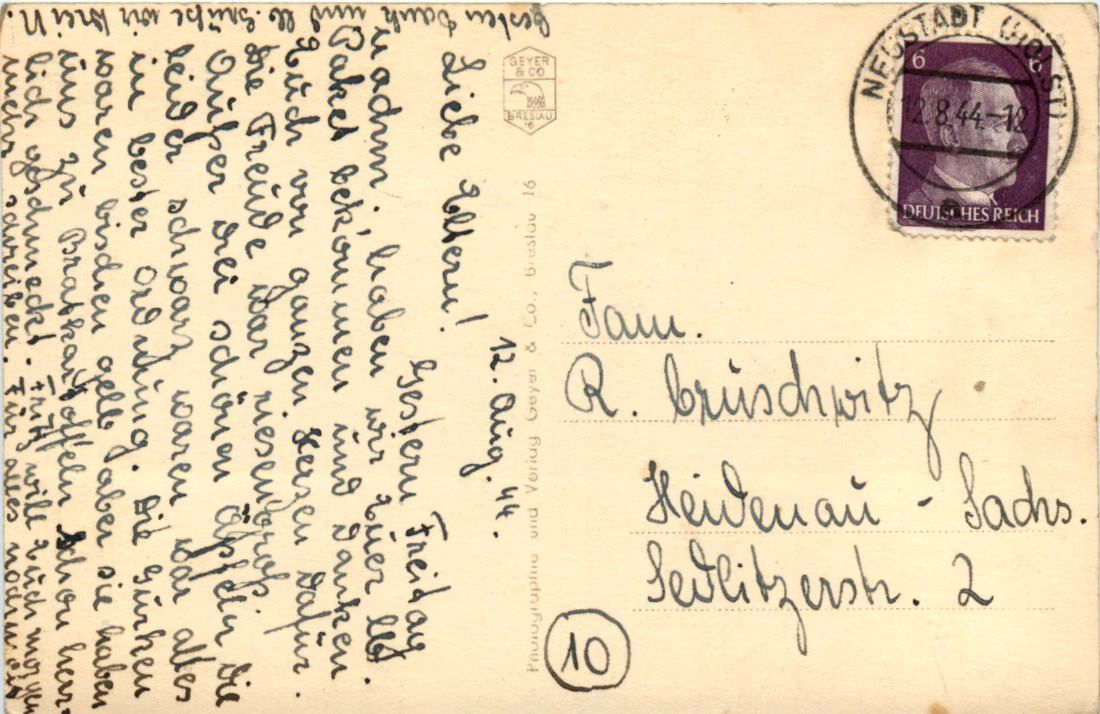 12. Aug. 44.
Liebe Eltern!
Gestern Freitag
nachm. haben wir Euer lb.
Paket bekommen und danken
Euch von ganzen Herzen dafür.
Die Freude war riesengroß.
Außer drei schönen Äpfeln die
leider schwarz waren war alles
in bester Ordnung. Die Gurken
waren bischen gelb aber sie haben
uns zu Bratkartoffeln schon herr-
lich geschmeckt. Fritz will Euch morgen
mehr schreiben. Für alles nochmals
besten Dank und lb. Grüße wir drei N.
GEYER
& CO
BRESLAU
16
Photographie und Verlag Geyer & Co., Breslau 16
NEUSTADT (HOLST)
12.8.44.-12
a
6 6
DEUTSCHES REICH
Fam.
R. Grüschwitz
Heidenau - Sachs.
Sedlitzerstr. 2
10